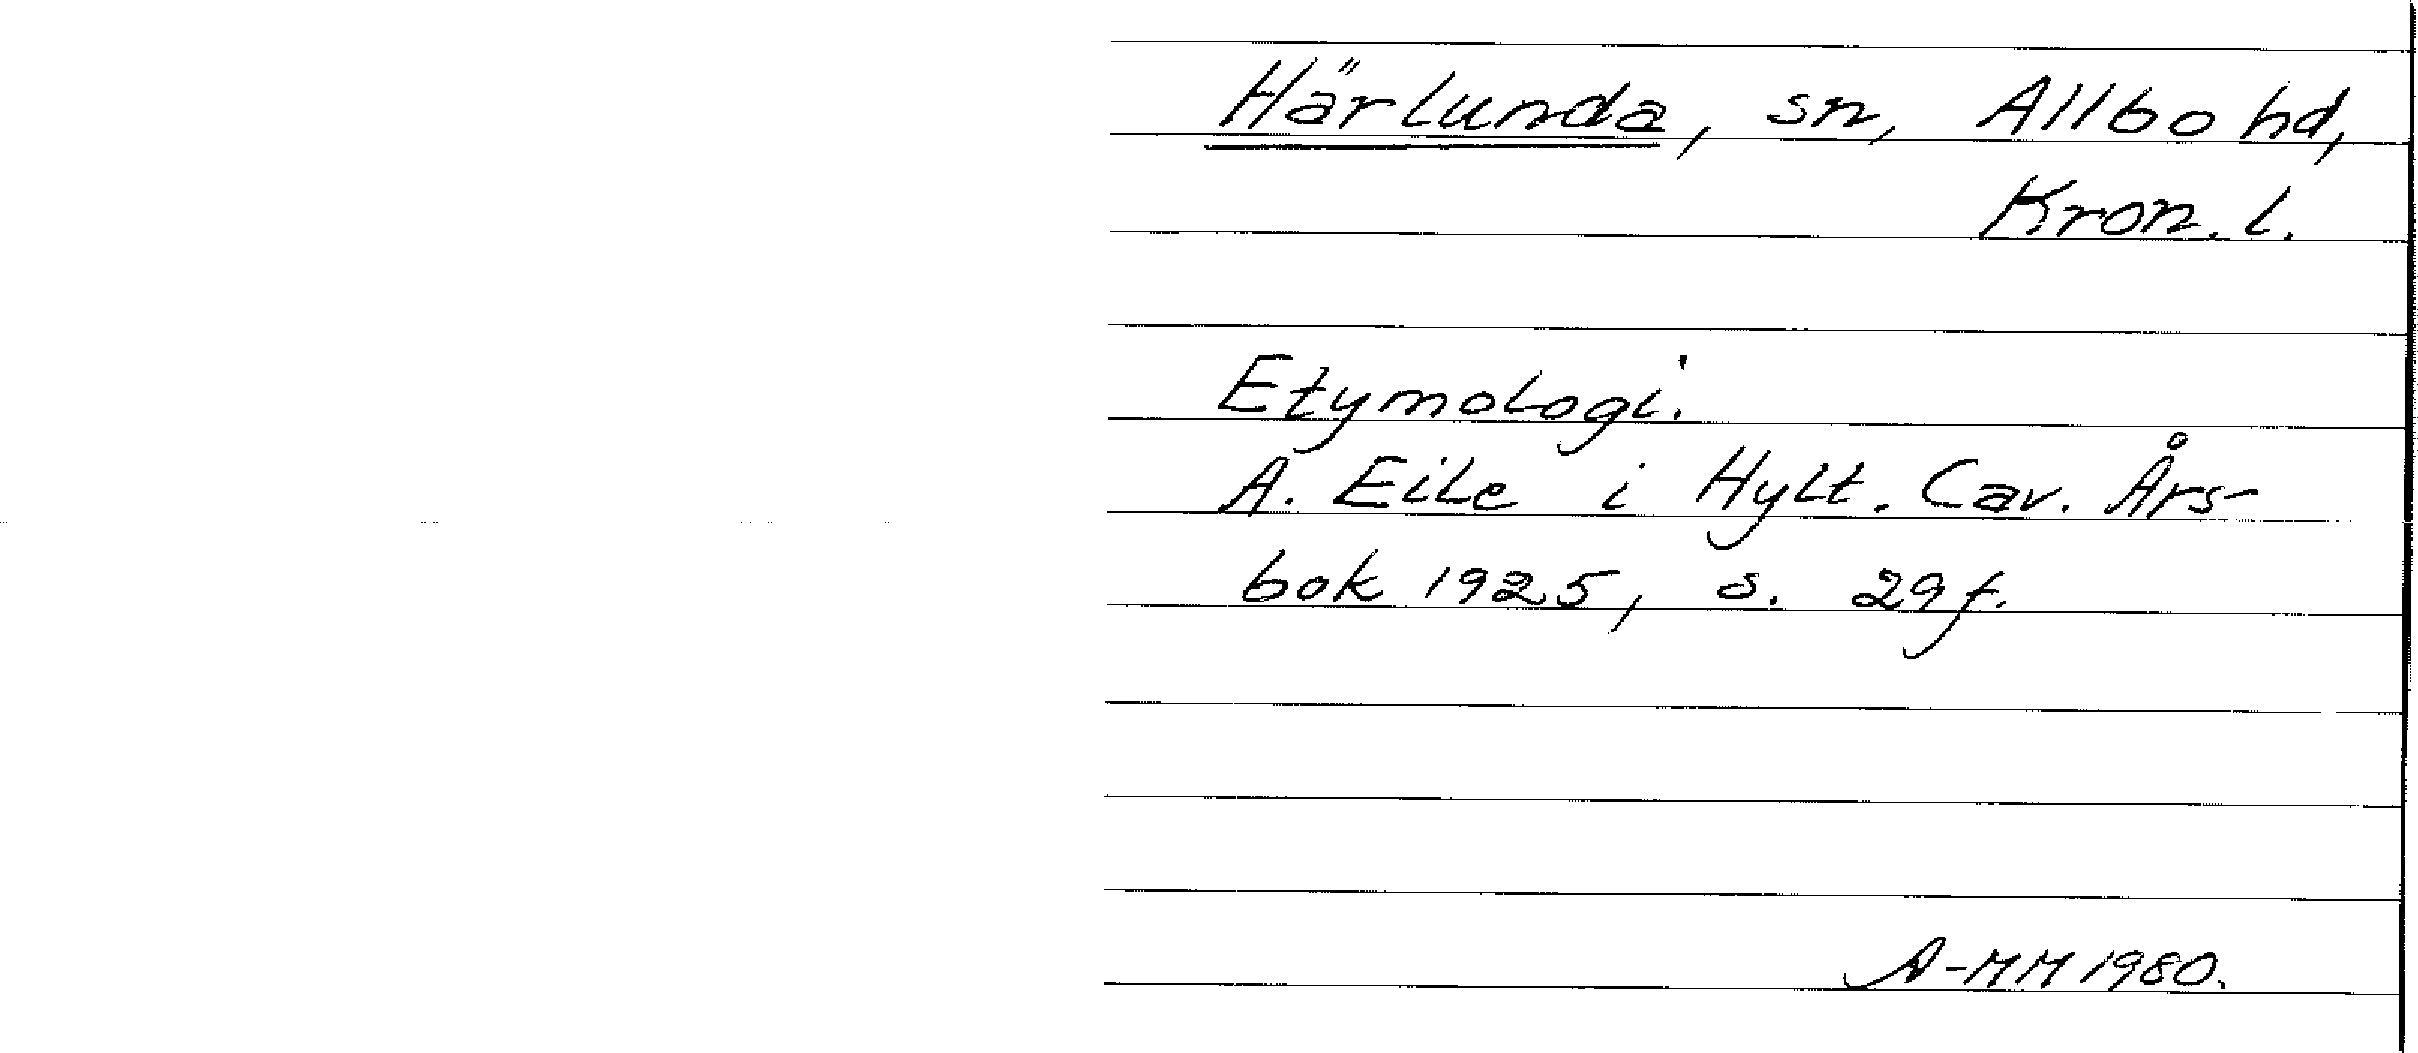 Härlunda, sn, Allbo hd,
Kron. l.
Etymologi.
A. Eile i Hylt. Cav. Års-
bok 1925, s. 29f.
A-MM 1980.